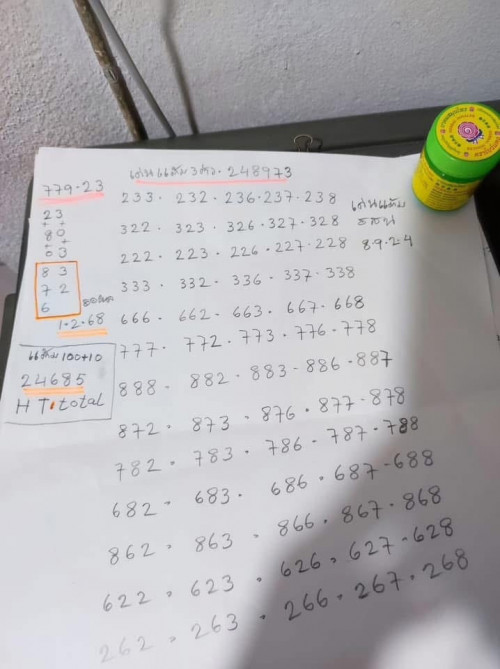 เด่นแต้ม3ตัว. 248973
779.23
23
+ +
80
+ +
03
83
72
6
1.2.68
แต้ม 100+10
24685
H T. total
233. 232. 236.237.238
322. 323. 326.327.328
222. 223. 226.227.228
333. 332. 336. 337.338
666. 662. 663. 667.668
777. 772. 773. 776.778
888. 882. 883. 886.887
872. 873. 876. 877.878
782. 783. 786. 787.788
682. 683. 686. 687.688
862. 863. 866. 867.868
622. 623. 626. 627.628
262. 263. 266. 267.268
เด่นแต้ม
89.24